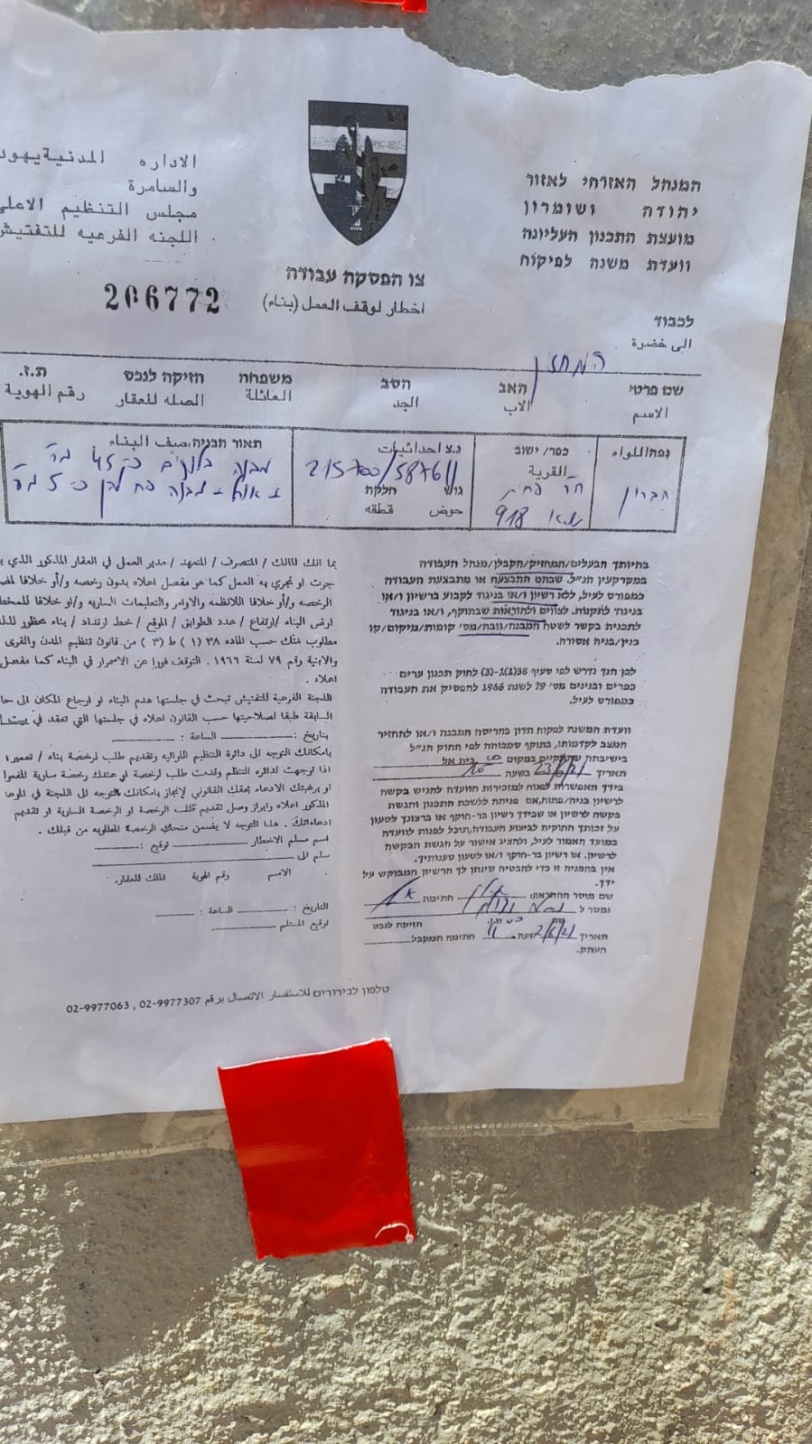 המנהל האזרחי לאזור
יהודה ושומרון
מועצת התכנון העליונה
וועדת משנה לפיקוח
الاداره المدنية يهود
والسامرة
مجلس التنظيم الاعلى
اللجنه الفرعيه للتفتيش
צו הפסקת עבודה
اخطار لوقف العمل (بناء)
206772
לכבוד
الى حضرة
המחזיק
שם פרטי האב הסב משפחה חזיקה לנכס ת.ז.
الاسم الاب الجد العائلة الصله للعقار رقم الهوية
נפה/اللواء
חברון
כפר/ישוב
القرية
918
נ.צ احداثيات
215700/587611
גוש חלקה
حوض قطقه
תאור הבניה/وصف البناء
מבנה בלוקים כ-45 מ"ר
מבנה פח לבן כ-5 מ"ר
בהיותך הבעלים/המחזיק/הקבלן/מנהל העבודה
במקרקעין הנ"ל. שבהם התבצעה או מתבצעת העבודה
כמפורט לעיל, ללא רשיון ו/או בניגוד לקבוע ברשיון ו/או
בניגוד לתקנות. לצווים ולהוראות שבתוקף, ו/או בניגוד
לתכנית בקשר לשטח המבנה/גובה/מס' קומות/מיקום/קו
בנין/בניה אסורה.
לכן הנך נדרש לפי סעיף 38(1)ג-(3) לחוק תכנון ערים
כפרים ובנינים מס' 79 לשנת 1966 להפסיק את העבודה
כמפורט לעיל.
וועדת המשנה לפקוח תדון בהריסת המבנה ו/או להחזיר
המצב לקדמותו, בתוקף סמכותה לפי החוק הנ"ל
בישיבתה שתתקיים במקום בית אל
תאריך בשעה 10
בידך האפשרות לפנות למזכירות הוועדה להגיש בקשה
לרשיון בניה/פתוח, אם פניתה ללשכת התכנון והגשת
בקשה לרשיון או שבידך רשיון בר-תוקף או ברצונך לטעון
על זכותך החוקית לביצוע העבודה, תוכל לפנות לוועדה
במועד האמור לעיל, ולהציג אישור על הגשת הבקשה
לרשיון. או רשיון בר-תוקף ו/או לטעון טענותיך.
אין בהפניה זו כדי להבטיח שינתן לך הרשיון המבוקש על
ידך.
שם מוסר ההתראה: חתימה
נמסר ל
חזיקה לנכס
תאריך שעה 11 חתימת המקבל
העתק.
بما انك المالك / المتصرف / المتعهد / مدير العمل في العقار المذكور الذي
جرت او تجري به العمل كما هو مفصل اعلاه بدون رخصه و/أو خلافا
الرخصه و/أو خلافا للانظمه والاوامر والتعليمات الساريه و/او خلافا
ارض البناء /ارتفاع / عدد الطوابق / الموقع / خط ارتداد / بناء محظور
مطلوب منك حسب الماده ٣٨ (١) ط (٣) من قانون تنظيم المدن والقرى
والابنية رقم ٧٩ لسنة ١٩٦٦ . التوقف فورا عن الاستمرار في البناء كما مفصل
اعلاه .
اللجنة الفرعية للتفتيش تبحث في جلستها هدم البناء او ارجاع المكان الى
السابقة طبقا لصلاحيتها حسب القانون اعلاه في جلستها التي تعقد في
بتاريخ: الساعة :
بامكانك التوجه الى دائرة التنظيم اللوائيه وتقديم طلب لرخصة بناء / تعمير؛
اذا توجهت لدائره التنظم وقدمت طلب لرخصة او عندك رخصة سارية
او برغبتك الادعاء بحقك القانوني لإنجاز بامكانك التوجه الى اللجنة في
المذكور اعلاه وابراز وصل تقديم طلب الرخصة او الرخصة السارية او تقديم
ادعاءاتك . هذا التوجه لا يضمن منحك الرخصة المطلوبه من قبلك .
اسم مسلم الاخطار توقيع :
سلم الى
الاسم رقم الهوية المالك للعقار.
التاريخ : الساعة :
توقيع المستلم
טלפון לבירורים للاستفسار الاتصال برقم 02-9977307 , 02-9977063